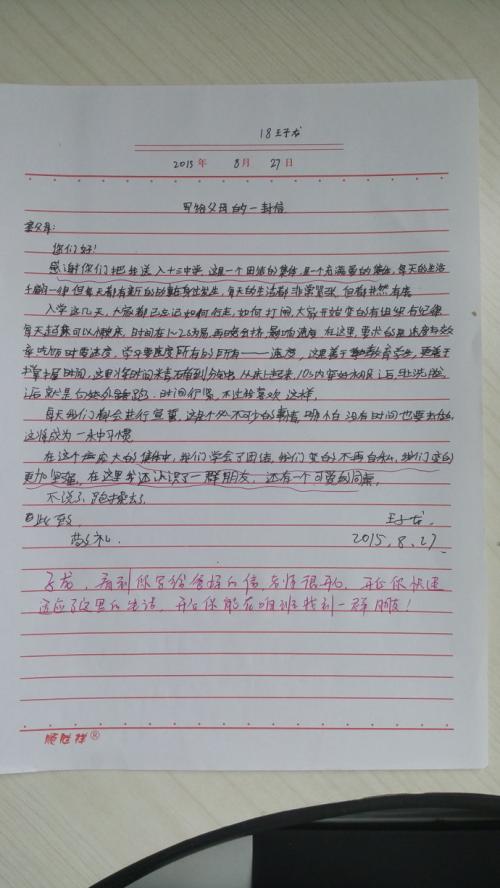 18 王子龙
2015 年 8 月 27 日
写给父母的一封信
亲父母:
您们好!
感谢你们把我送入十三中学,这是一个团结的集体,是一个充满爱的集体,每天的生活
千篇一律但每天都有新的动力在身边发生,每天的生活都非常紧张,但都井然有序
入学这几天,大家都已忘记如何行走,如何打闹,大家开始变的有组织有纪律
每天起床可以很晚床,时间在1~2分为易,再晚会挤,影响速度,在这里,要求的是速度与效
率吃饭时要速度,学习要速度所有的所有——速度,这里善于教育学生,更善于
掌握时间,这里将时间来看,从床上起来,10分内穿好衣服后,
后就是白外跑,时间很紧,不过我喜欢这样.
每天我们都会进行宣誓,这是个必不可少的事情,哪怕没有时间也要去做,
这将成为一永中习惯
在这个温度大的集体中,我们学会了团结,我们变的不再自私,我们变的
更加坚强,在这里我还认识了一群朋友,还有一个可爱的同桌,
不说了,跑操去了
此致
敬礼 王子龙.
2015.8.27
子龙,看到你写给爸妈的信,老师很开心,开心你快速
适应了这里的生活,开心你能在咱班找到一群朋友!
顺胜祥®